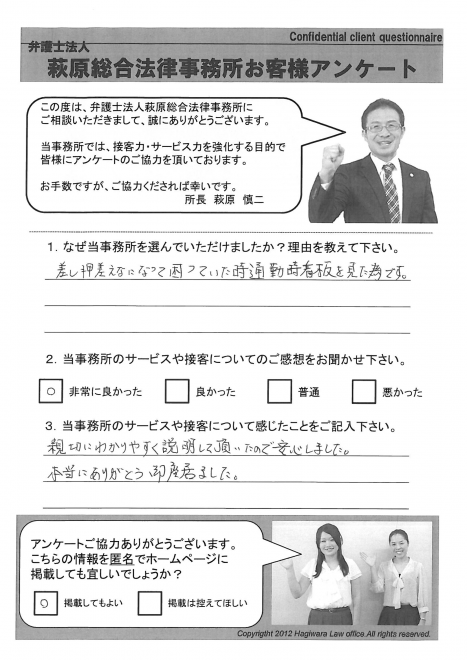 Confidential client questionnaire
弁護士法人
萩原総合法律事務所お客様アンケート
この度は、弁護士法人萩原総合法律事務所に
ご相談いただきまして、誠にありがとうございます。
当事務所では、接客力・サービス力を強化する目的で
皆様にアンケートのご協力を頂いております。
お手数ですが、ご協力くだされば幸いです。
所長 萩原 慎二
1. なぜ当事務所を選んでいただけましたか?理由を教えて下さい。
差し押差えなになって困っていた時通勤時看板を見た為です。
2. 当事務所のサービスや接客についてのご感想をお聞かせ下さい。
○ 非常に良かった 良かった 普通 悪かった
3. 当事務所のサービスや接客について感じたことをご記入下さい。
親切にわかりやすく説明して頂いたので安心しました。
本当にありがとう ました。
アンケートご協力ありがとうございます。
こちらの情報を匿名でホームページに
掲載しても宜しいでしょうか?
○ 掲載してもよい 掲載は控えてほしい
Copyright 2012 Hagiwara Law office.All rights reserved.